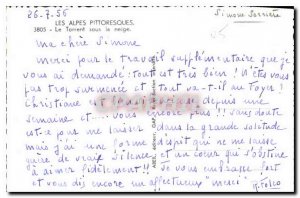 26-7-56
Simone
LES ALPES PITTORESQUES.
3805 - Le Torrent sous la neige.
ma chère Simone
Merci pour le travail supplémentaire que je
vous ai demandé: tout est très bien! N'êtes vous
pas trop surmenée et tout va-t-il au Foyer!
Christiane depuis une
semaine et vous encore plus!! sans doute
est-ce pas me laisser dans la grande solitude
mais j'ai une forme d'esprit qui ne me laisse
guère de vrai silence et un coeur qui s'obstine
à aimer fidèlement!! Je vous embrasse fort
et vous dis encore un affectueux merci.